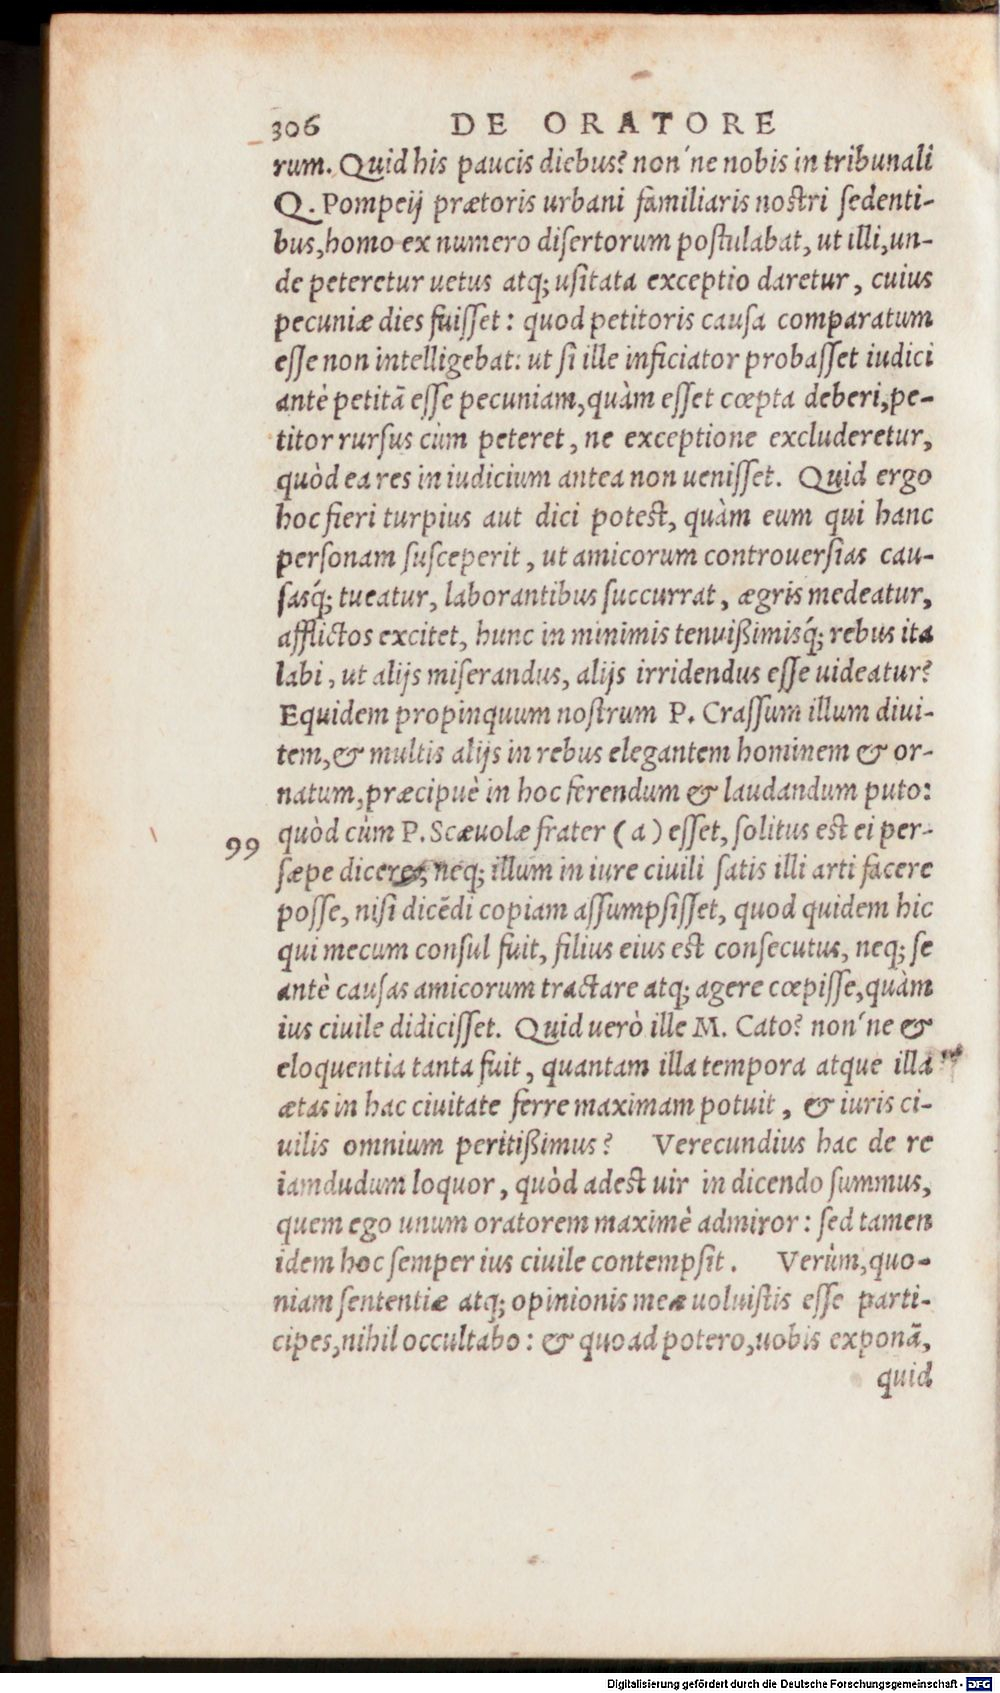 306 DE ORATORE
rum. Quid his paucis diebus? non´ne nobis in tribunali
Q. Pompeij prætoris urbani familiaris nostri ſedenti-
bus, homo ex numero diſertorum postulabat, ut illi, un-
de peteretur uetus atq; uſitata exceptio daretur, cuius
pecuniæ dies fuiſſet: quod petitoris cauſa comparatum
eſſe non intelligebat: ut ſi ille inficiator probaſſet iudici
antè petitã eſſe pecuniam, quàm eſſet cœpta deberi, pe-
titor rurſus cùm peteret, ne exceptione excluderetur,
quòd ea res in iudicium antea non ueniſſet. Quid ergo
hoc fieri turpius aut dici potest, quàm eum qui hanc
perſonam ſuſceperit, ut amicorum controuerſias cau-
ſasq́; tueatur, laborantibus ſuccurrat, ægris medeatur,
afflictos excitet, hunc in minimis tenuißimisq́; rebus ita
labi, ut alijs miſerandus, alijs irridendus eſſe uideatur?
Equidem propinquum nostrum P. Craſſum illum diui-
tem, & multis alijs in rebus elegantem hominem & or-
natum, præcipuè in hoc ferendum & laudandum puto:
quòd cùm P. Scæuolæ frater (a) eſſet, ſolitus est ei per-
99
ſæpe dicere, neq; illum in iure ciuili ſatis illi arti facere
poſſe, niſi dicẽdi copiam aſſumpſiſſet, quod quidem hic
qui mecum conſul fuit, filius eius est conſecutus, neq; ſe
antè cauſas amicorum tractare atq; agere cœpiſſe, quàm
ius ciuile didiciſſet. Quid uerò ille M. Cato? non´ne &
eloquentia tanta fuit, quantam illa tempora atque illa
ætas in hac ciuitate ferre maximam potuit, & iuris ci-
uilis omnium peritißimus? Verecundius hac de re
iamdudum loquor, quòd adest uir in dicendo ſummus,
quem ego unum oratorem maximè admiror: ſed tamen
idem hoc ſemper ius ciuile contempſit. Verùm, quo-
niam ſententiæ atq; opinionis meæ uoluistis eſſe parti-
cipes, nihil occultabo: & quoad potero, uobis exponã,
quid
Digitalisierung gefördert durch die Deutsche Forschungsgemeinschaft - DFG